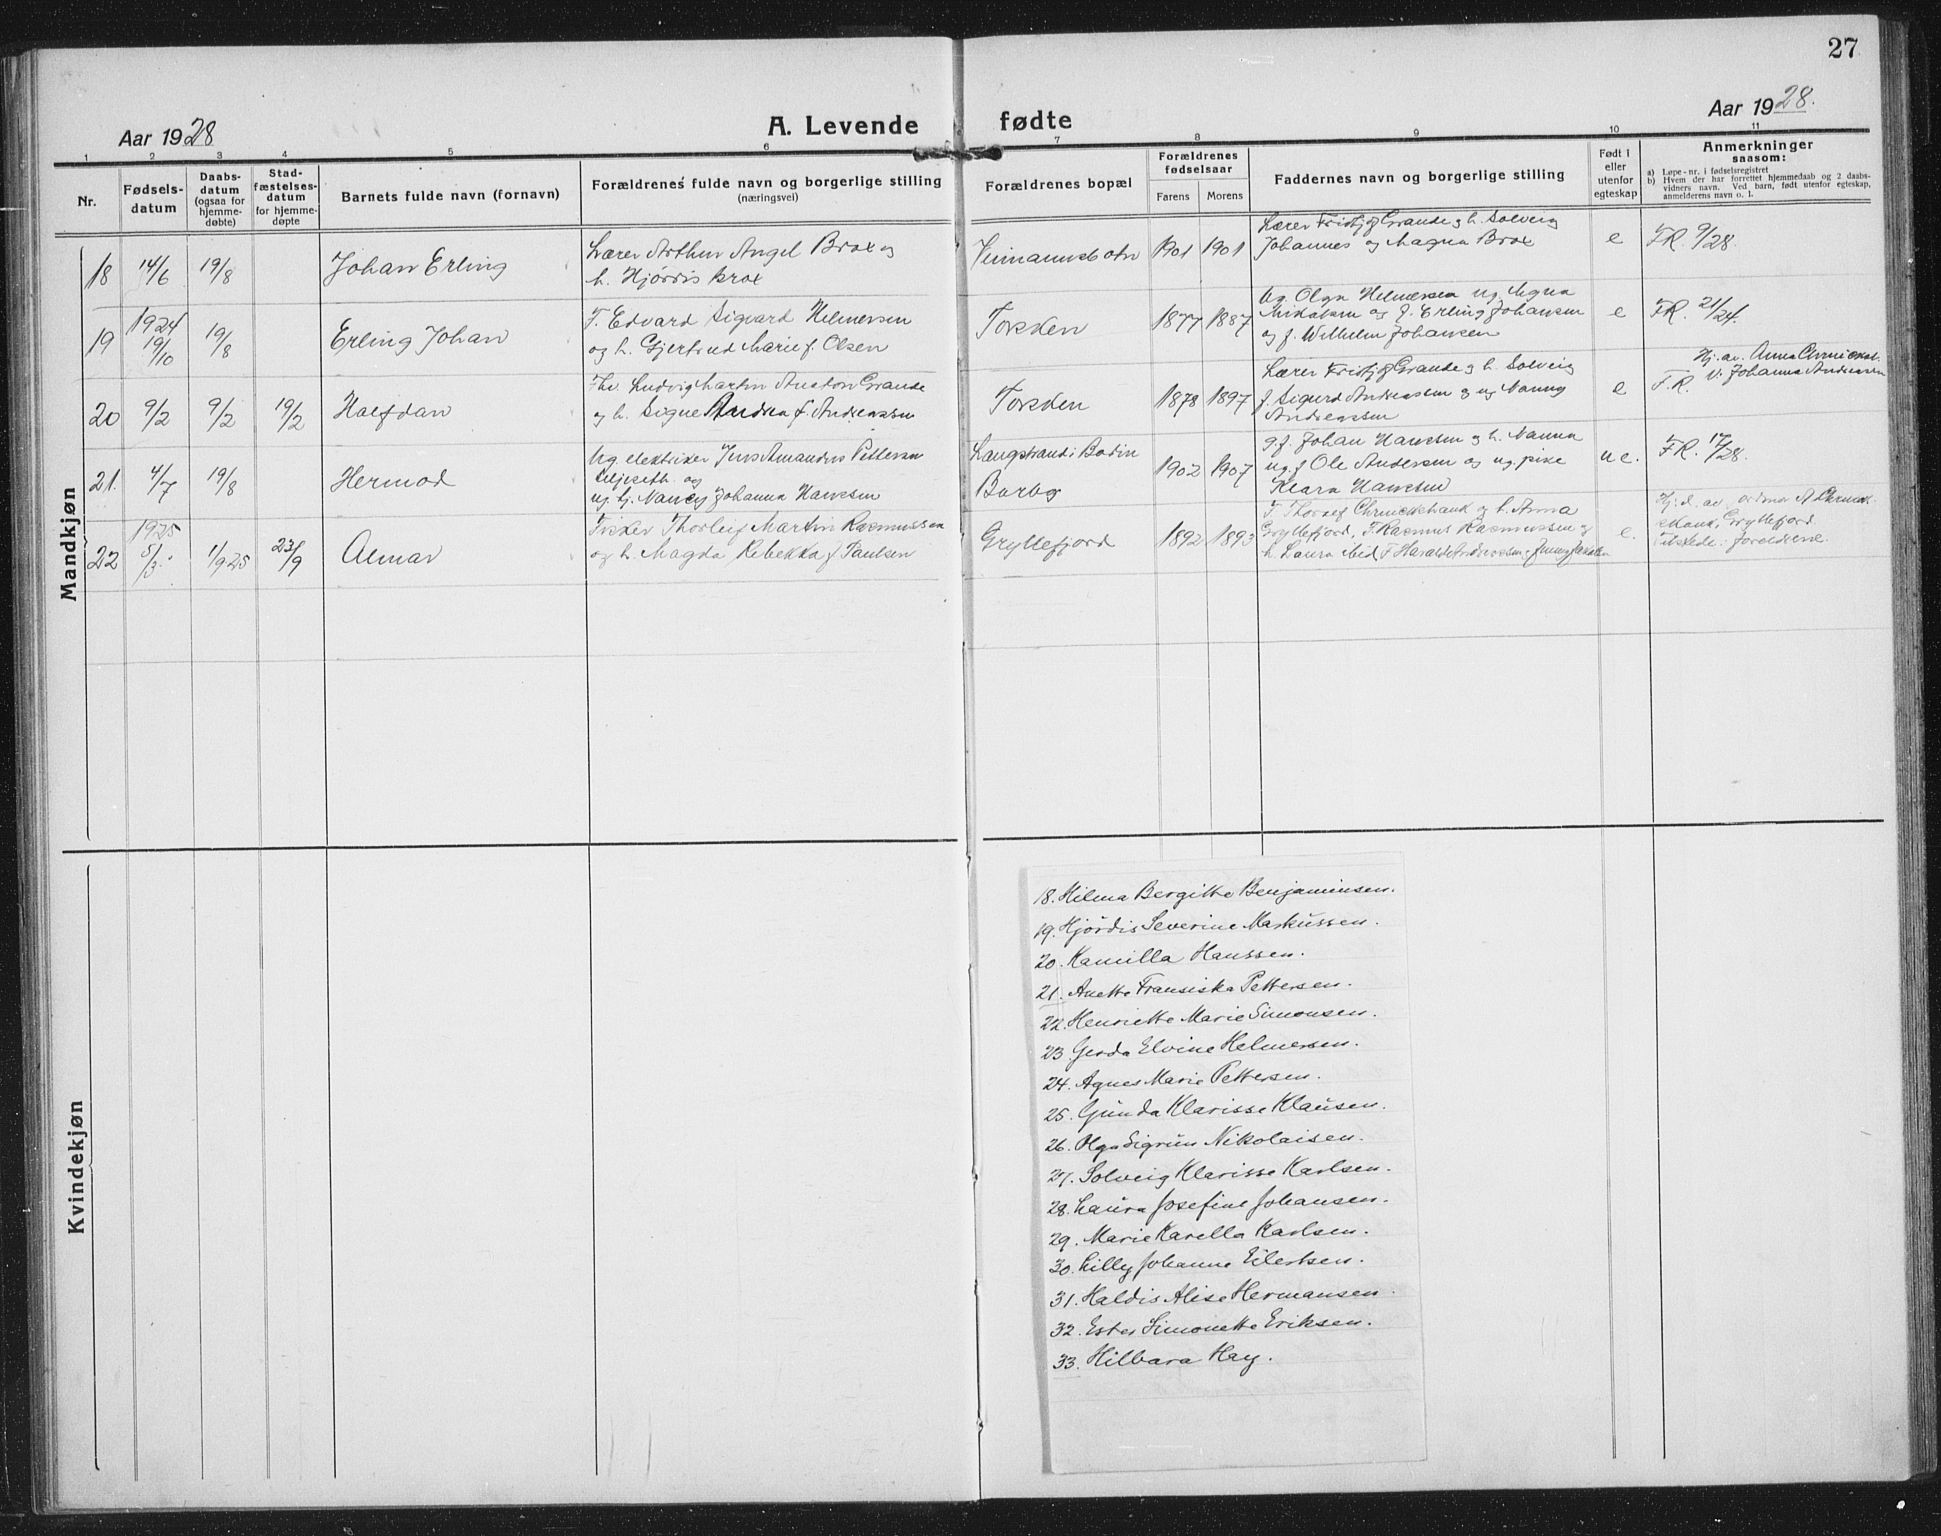 27
Aar 1928
A. Levende fødte
Aar 1928.
1 2 3 4 5 6 7 8 9 10 11
Nr.
Fødsels-
datum
Daabs-
datum
(ogsaa for
hjemme-
døbte)
Stad-
fæstelses-
datum
for hjemme-
døpte
Barnets fulde navn (fornavn)
Forældrenes fulde navn og borgerlige stilling
(næringsvei)
Forældrenes bopæl
Forældrenes
fødselsaar
Farens Morens
Faddernes navn og borgerlige stilling
Født i
eller
utenfor
egteskap
Anmerkninger
saasom:
a) Løpe-nr. i fødselsregistret
b) Hvem der har forrettet hjemmedaab og 2 daabs-
vidners navn. Ved barn, født utenfor egteskap,
anmelderens navn o. l.
Mandkjøn
18 14/6 19/8 Johan Erling
Lærer Arthur Angel Brox og
h. Hjørdis Brox
1901 1901
Lærer Fridtjof Grande og h. Solveig
Johannes og Magna Brox
e FR. 9/28.
19 1924 19/10 19/8 Erling Johan
F. Edvard Sigvard Helmersen
og h. Gjertrud Marie f. Olsen
Torsken 1877 1887
Ug. Olga Helmersen ug. Magna
Mikalsen og f. Erling Johansen
og f. Wilhelm Johansen
e FR. 21/24.
20 9/2 9/2 19/2 Halfdan
Ludvig Martin Anton Grande
og h. Signe Andrea f. Andreassen
Torsken 1878 1897
Lærer Fridtjof Grande og h. Solveig
f. Sigurd Andreassen og ug Nanny
Andreassen
e F.R.
Hj. av. Anna
V: Johanna Andreassen
21. 4/7 19/8 Hermod
Ug. elektriker Jens Amandus Pettersen
og
ug. Nancy Johanna Hansen
Langstrand i Bodin
1902 1907
g.f. Johan Hansen og h. Nanna
ug. f Ole Andersen og ug. pike
Klara Hansen
u e. FR. 17/28.
22 1925 5/3 1/9 25 23/9 Almar
Fisker Thorleif Martin Rasmussen
og h. Magda Rebekka f. Paulsen
Gryllefjord 1892 1893
og h. Anna
Gryllefjord, F. Rasmus Rasmussen og
h. Laura
e.
Hj. d. av
Gryllefjord.
Tilstede: foreldrene.
Kvindekjøn
18. Hilma Bergitte Benjaminsen.
19. Hjördis Severine Markussen.
20. Kamilla Hanssen.
21. Anette Fransiska Pettersen.
22. Henriette Marie Simonsen.
23 Gerda Elvine Helmersen.
24. Agnes Marie Pettersen.
25. Gunda Klarisse Klausen.
26. Olga Sigrun Nikolaisen.
27. Solveig Klarisse Karlsen.
28. Laura Josefine Johansen.
29. Marie Karella Karlsen.
30. Lilly Johanne Eilertsen.
31. Haldis Alise Hermansen.
32. Ester Simonette Eriksen.
33. Hilbara Hay.